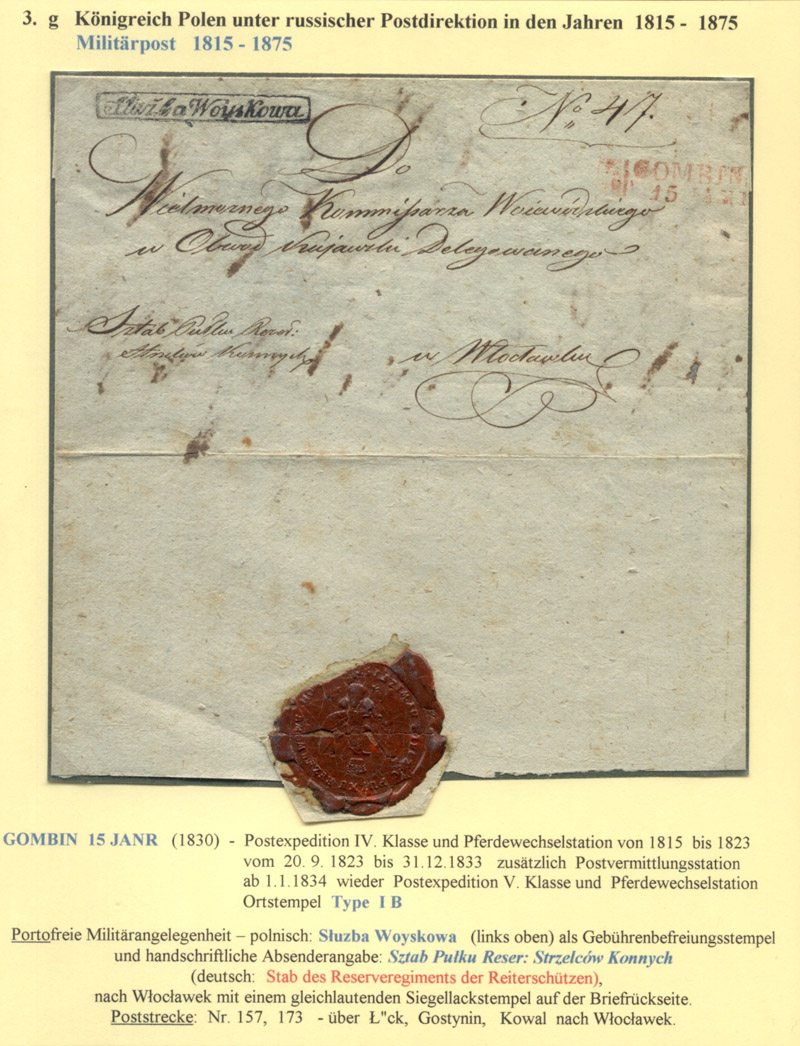 3. g Königreich Polen unter russischer Postdirektion in den Jahren 1815 - 1875
Militärpost 1815 - 1875
Służba Woyskowa
No 47.
Do
GOMBIN
15
Wielmożnego Kommissarza Woiewódzkiego
w Obwod Kujawski Delegowanego
Sztab Pułku Rezer:
Strzelców Konnych
w Włocławku
GOMBIN 15 JANR (1830) - Postexpedition IV. Klasse und Pferdewechselstation von 1815 bis 1823
vom 20. 9. 1823 bis 31.12.1833 zusätzlich Postvermittlungsstation
ab 1.1.1834 wieder Postexpedition V. Klasse und Pferdewechselstation
Ortstempel Type I B
Portofreie Militärangelegenheit – polnisch: Słuzba Woyskowa (links oben) als Gebührenbefreiungsstempel
und handschriftliche Absenderangabe: Sztab Pułku Reser: Strzelców Konnych
(deutsch: Stab des Reserveregiments der Reiterschützen),
nach Włocławek mit einem gleichlautenden Siegellackstempel auf der Briefrückseite.
Poststrecke: Nr. 157, 173 - über Ł"ck, Gostynin, Kowal nach Włocławek.